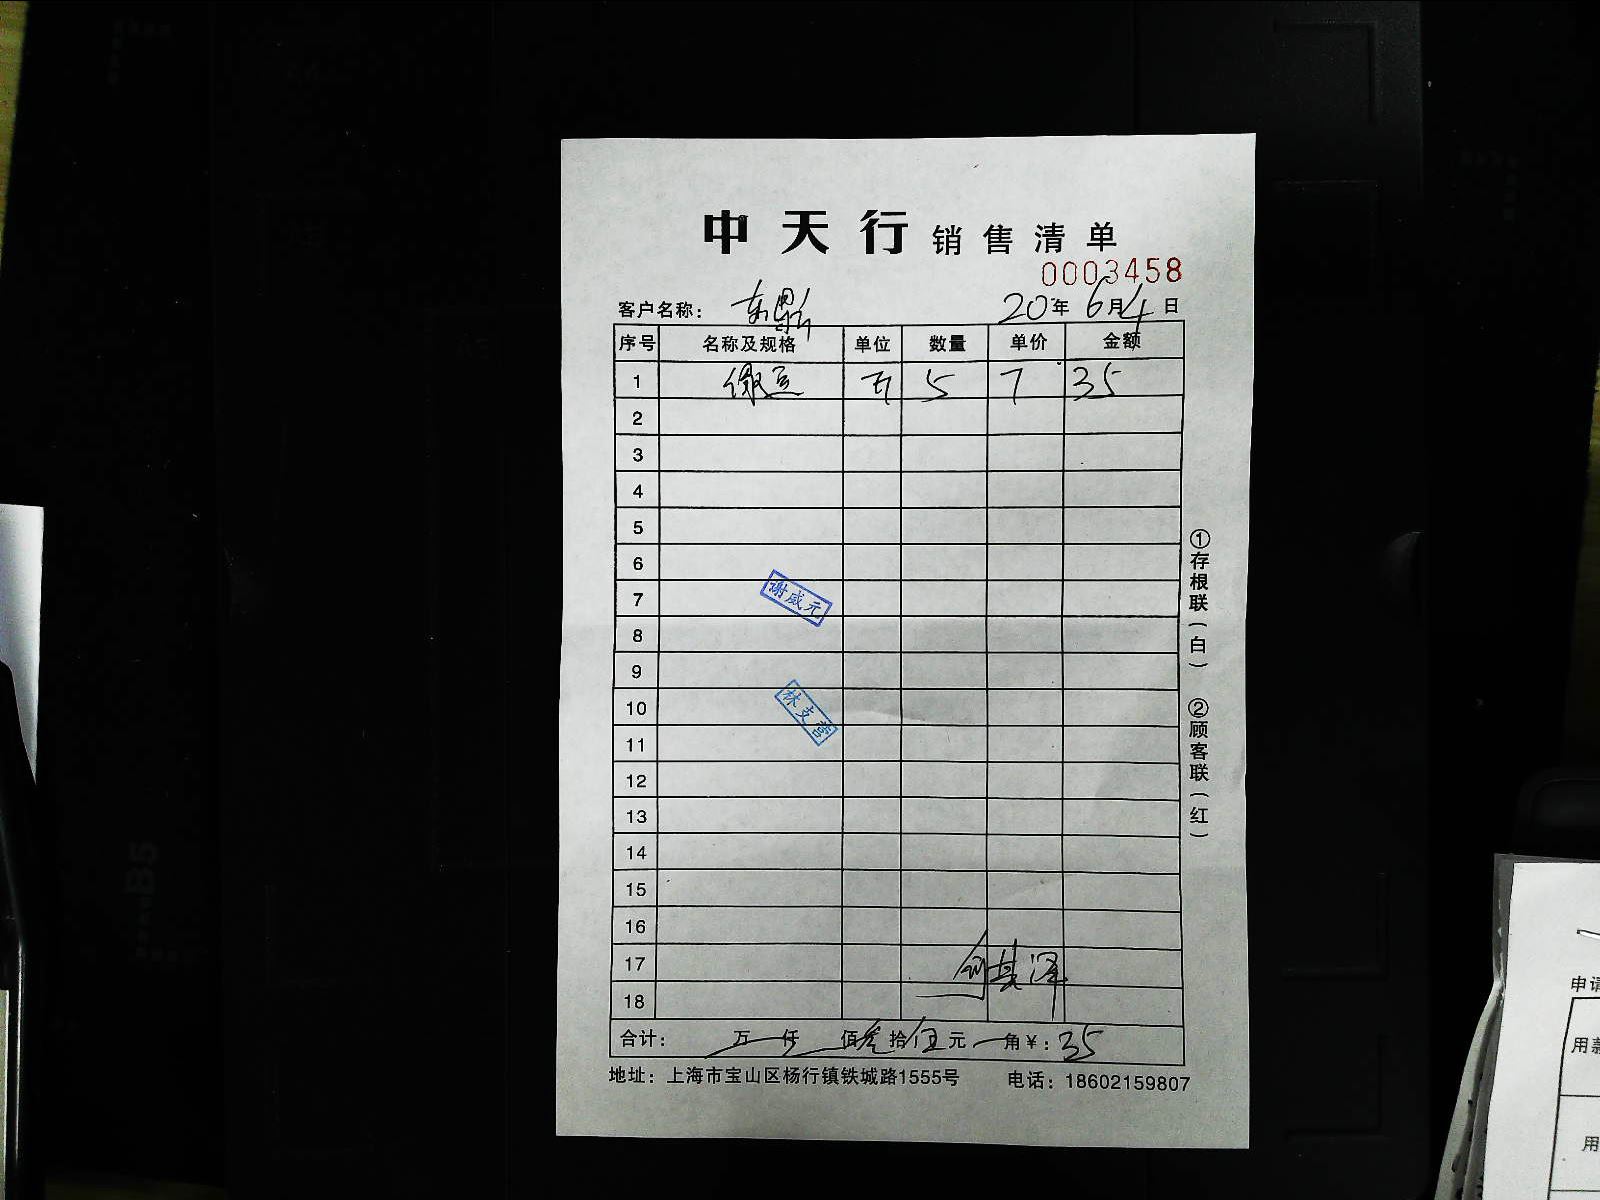 中天行 销售清单
0003458
客户名称： 东鼎 20年6月4日
序号 名称及规格 单位 数量 单价 金额
1 绿豆 斤 5 7 35
2
3
4
5
6
7 谢威元
8
9
10 林支营
11
12
13
14
15
16
17
18
合计： 万 仟 佰叁拾伍元 角￥：35
地址：上海市宝山区杨行镇铁城路1555号 电话：18602159807
①存根联（白）
②顾客联（红）
B5
申请
用